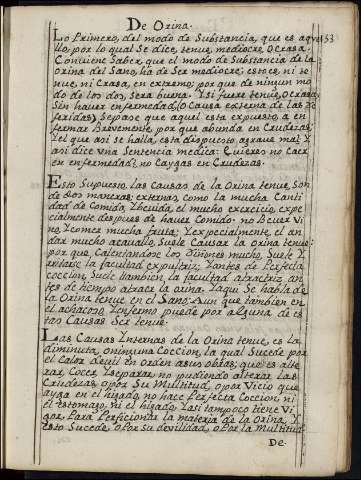 De Orina.
153
Lo Primero, del modo de Substancia, que es aque
llo, por lo qual se dice, tenue, mediocre, o Crasa.
Conviene Saber, que el modo de Substancia de la
Orina del Sano, ha de Ser mediocre; esto es, ni te
nue, ni Crasa, en extremo; por que de ningun mo
do de los dos, Sera buena. Y si fuere tenue, o Crasa,
Sin haver enfermedad, (o Causa externa de las re
feridas) Sepase que aquel esta expuesto, a en
fermar Brevemente, por que abunda en Crudezas;
Yel que asi se halla, esta dispuesto, a grave mal: Y
asi dice una Sentencia medica: Quieres no Caer
en enfermedad? no Caygas en Crudezas.
Esto Supuesto, las Causas de la Orina tenue, Son
de dos maneras; externas, como la mucha Canti
dad de Comida, Ybebida, el mucho exercicio, expe
cialmente despues de haver Comido: no bever Vi
no, Ycomer mucha fruta; Yexpecialmente, el an
dar mucho acavallo, Suele Causar la orina tenue:
por que, Calentandose los Riñones mucho, Suele Y
rritarse la facultad expultriz; Yantes de Perfecta
coccion, Suele tambien, la facultad atractriz, an
tes de tiempo atraer la orina. Yaqui Se habla de
la Orina tenue en el Sano. Aun que tambien en
el achacoso, Yenfermo puede por alguna de es
tas Causas Ser tenue.
Las Causas Internas de la Orina tenue, es la
diminuta, o ninguna Coccion, la qual Sucede por
el Calor devil en orden a sus obras; que es alte
rar, Cocer, Yseparar, no pudiendo alterar las
Crudezas, o por Su Multitud, o por Vicio que
ayga en el higado, no hace Perfecta Coccion, ni
el estomago, ni el higado, Yasi tampoco tiene Vi
gor, Para Perficionar la materia de la Orina, Y
esto Sucede, o Por su devilidad, o Por la Multitud
De